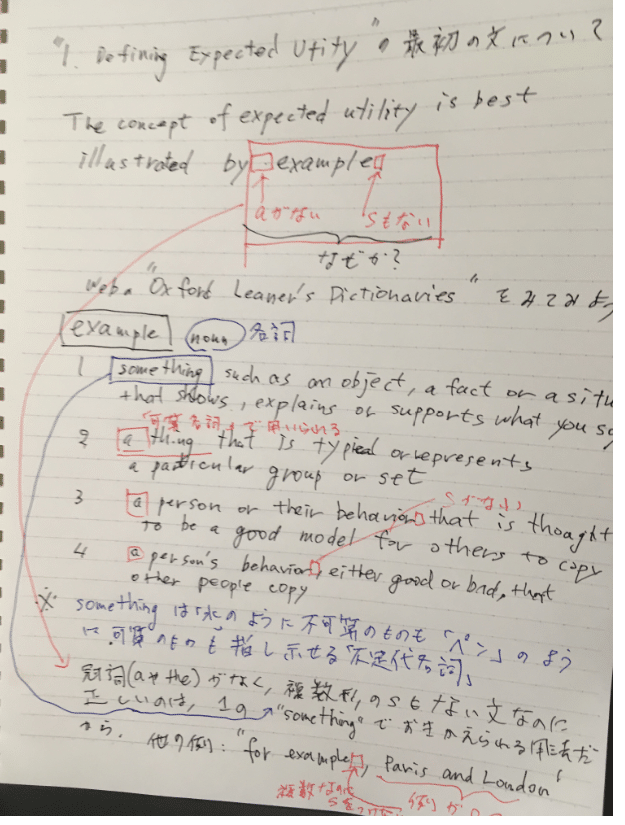 "1. Defining Expected Utity" の最初の文について
The concept of expected utility is best
illustrated by example
aがない sもない
なぜか?
Webの "Oxford Leaner's Dictionaries" をみてみよう
example noun 名詞
1 something such as an object, a fact or a situ
that shows, explains or supports what you say
「可算名詞」で用いられる
2 a thing that is typical or represents
a particular group or set
sがない
3 a person or their behavior that is thought
to be a good model for others to copy
4 a person's behavior, either good or bad, that
other people copy
※ something は「水のように不可算のものも「ペン」のよう
に可算のものも指し示せる「不定代名詞」
冠詞(aやthe)がなく, 複数形のsもない文なのに
正しいのは, 1の "something" でおきかえられる用法だ
から. 他の例: "for example, Paris and London"
複数なのに
sをつけない
例が